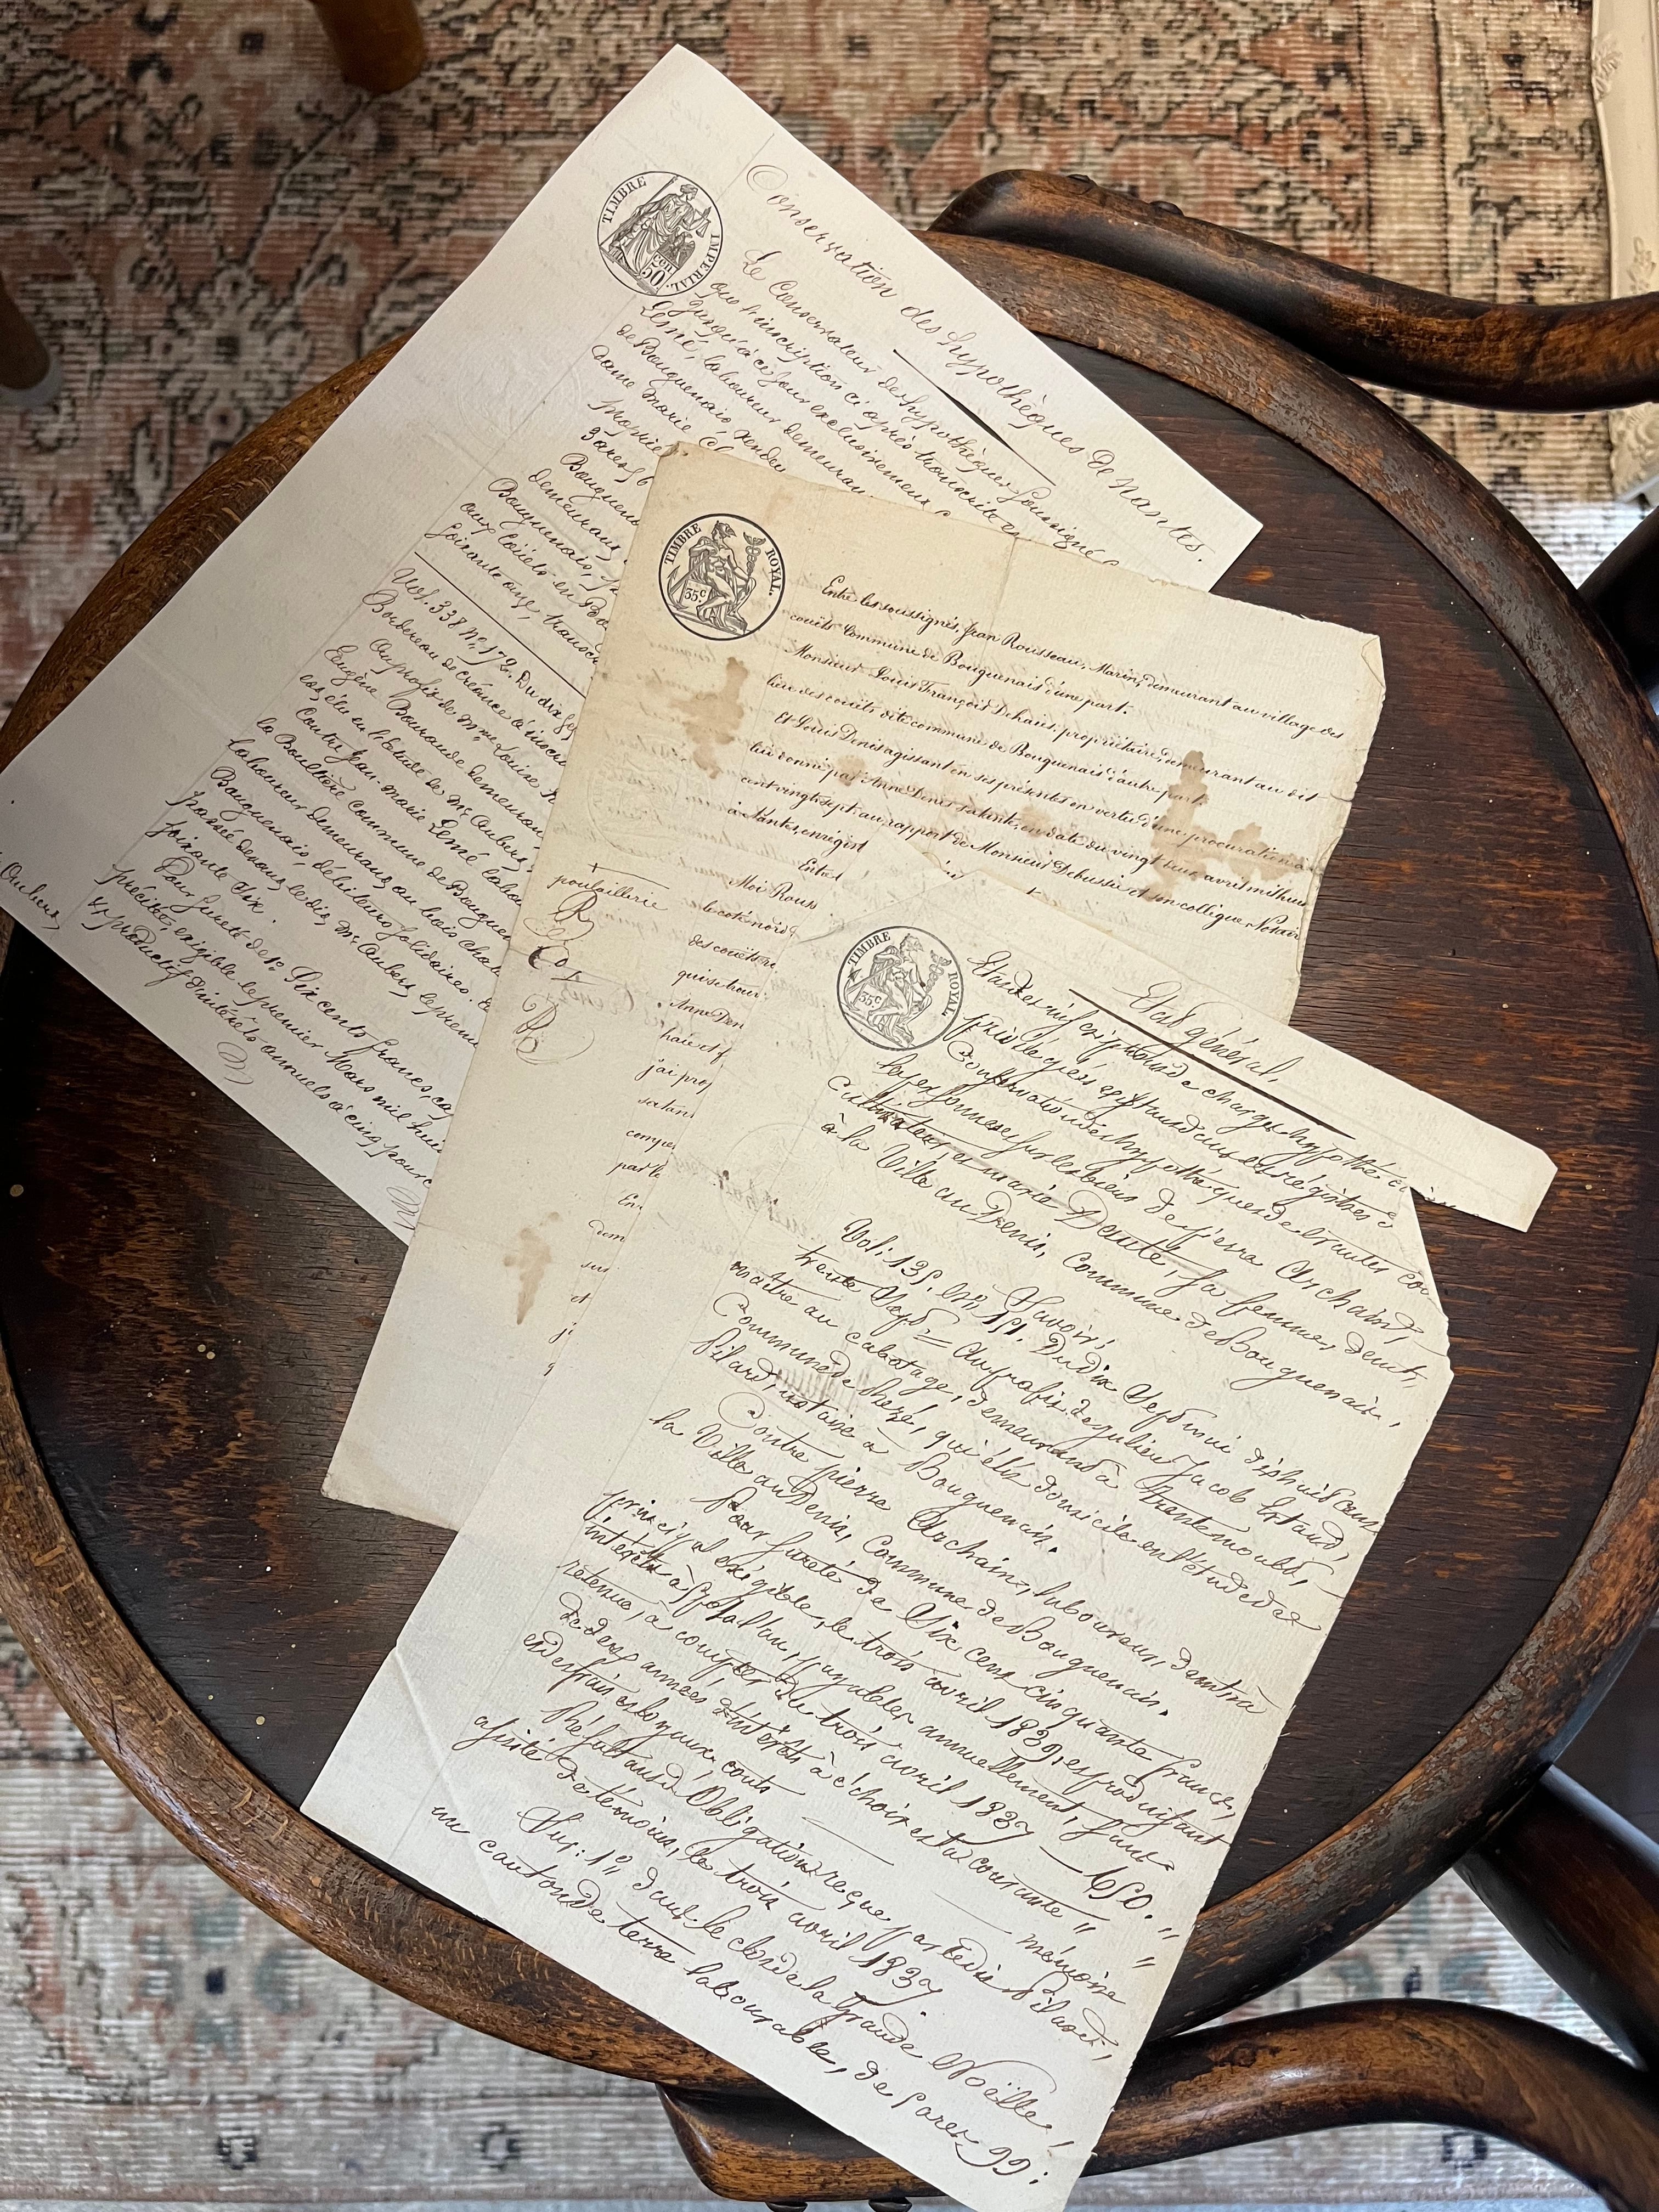 TIMBRE IMPERIAL.
50
Conservation des hypothèques de Nantes.
Le Conservateur des hypothèques soussigné
que l'inscription ci après transcrite
jusqu'à ce jour exclusivement
Lemé, laboureur demeurant
de Bouguenais, vendeur
Dame Marie
propriét
3 ares 56
Bouguen
demeurant
Bouguenais,
aux Coüets en Bo
soixante onze, transcr
Vol. 338 No. 172. Du dix
Bordereau de créance à inscri
Au profit de Mme Louise
Eugène Bouraude demeurant
élu en l'étude de Me Aubert,
Contre Jean-Marie Lemé labou
la Boultière commune de Bouguen
laboureur demeurant au bois Cha
Bouguenais, débiteurs solidaires.
passée devant le dit Me Aubert le premi
soixante six.
Pour sureté de 1o. Six cents francs, ca
précité, exigible le premier Mars mil huit
& productif d'intérêts annuels à cinq pour c
TIMBRE ROYAL.
35c
Entre les soussignés, Jean Rousseau, Marin, demeurant au village des
couëts Commune de Bouguenais d'une part.
Monsieur Louis François Dehais, propriétaire, demeurant au dit
lieu des couëts dite commune de Bouguenais d'autre part.
Et Louis Denis agissant en ses présentes en vertu d'une procuration à
lui donné par Anne Denis sa tante, en date du vingt deux avril mil huit
cent vingt sept, au rapport de Monsieur Debussie et son collègue, Notair
à Nantes, enregist
Entre
Moi Rouss
le coté nord
des couëts
qui se trou
Anne Den
haie et f
j'ai pro
sa tan
comp
par le
En
dem
sur
et
j
q
poulaillerie
R
TIMBRE ROYAL.
35c
Etat général,
Etat des inscriptions de charges hypothécaires
privilégiées existant aux registres
Conservation des hypothèques de Nantes
les personnes & sur les biens de Pierre Archain,
Cultivateur, et Marie Dauté, sa femme, demt,
à la Ville au Denis, Commune de Bouguenais.
Savoir;
Vol: 135. No. 151. Du dix Sept mil dix huit cent
trente Sept = Au profit de Julien Jacob Ertaud,
maître au cabotage, demeurant à Trentemoult,
Commune de Rezé, qui élit domicile en l'étude de Me
Pilard, notaire à Bouguenais.
Contre Pierre Archain, laboureur, demt à
la Ville au Denis, Commune de Bouguenais.
Pour sureté de Six cent cinquante francs,
principal exigible, le trois avril 1839, et produisant
intérêts à 5 p% l'an, payables annuellement, sans
retenue, à compter du trois avril 1837 — 650. "
de deux années d'intérêts à échoir et la courante " "
et des frais et loyaux couts — mémoire
Résultant d'Obligation reçue par le dit Pilard,
assisté de témoins, le trois avril 1837.
Sur: 1o, dans le clos de la Grande Noëlle,
un canton de terre labourable, de 5 ares 99;